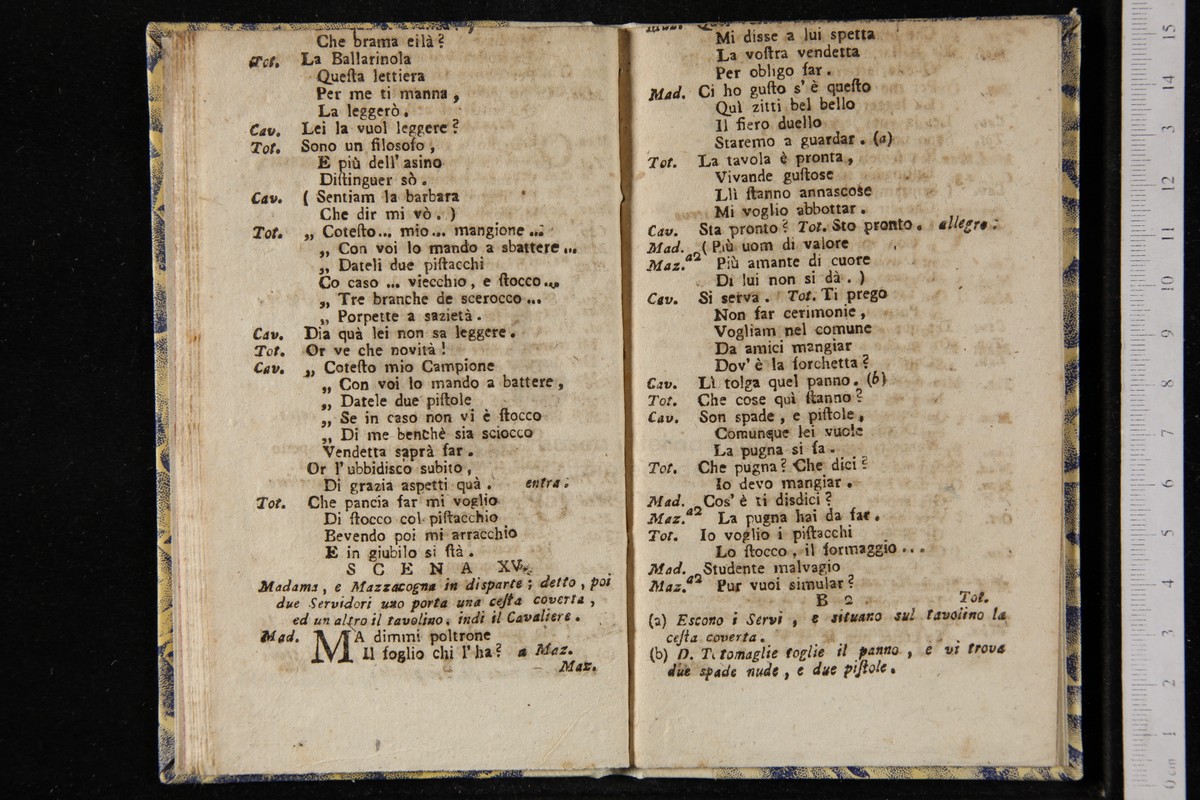 Che brama eilà?
Tot. La Ballarinola
Queſta lettiera
Per me ti manna,
La leggerò.
Cav. Lei la vuol leggere?
Tot. Sono un filosofo,
E più dell' asino
Diſtinguer sò.
Cav. ( Sentiam la barbara
Che dir mi vò. )
Tot. „ Coteſto... mio... mangione ...
„ Con voi lo mando a sbattere ...
„ Dateli due piſtacchi
Co caso ... viecchio, e ſtocco...
„ Tre branche de scerocco ...
„ Porpette a sazietà.
Cav. Dia quà lei non sa leggere.
Tot. Or ve che novità!
Cav. „ Coteſto mio Campione
„ Con voi lo mando a battere,
„ Datele due piſtole
„ Se in caso non vi è ſtocco
„ Di me benchè sia sciocco
Vendetta saprà far.
Or l'ubbidisco subito,
Di grazia aspetti quà. entra.
Tot. Che pancia far mi voglio
Di ſtocco col piſtacchio
Bevendo poi mi arracchio
E in giubilo si ſtà.
SCENA XV.
Madama, e Mazzacogna in disparte; detto, poi
due Servidori uno porta una ceſta coverta,
ed un altro il tavolino, indi il Cavaliere.
Mad. MA dimmi poltrone
Il foglio chi l'ha? a Maz.
Maz.
Mi disse a lui spetta
La voſtra vendetta
Per obligo far.
Mad. Ci ho guſto s' è queſto
Quì zitti bel bello
Il fiero duello
Staremo a guardar. (a)
Tot. La tavola è pronta,
Vivande guſtose
Llì ſtanno annascose
Mi voglio abbottar.
Cav. Sta pronto? Tot. Sto pronto. allegro.
Mad. ( Più uom di valore
Maz. a2 Più amante di cuore
Di lui non si dà. )
Cav. Si serva. Tot. Ti prego
Non far cerimonie,
Vogliam nel comune
Da amici mangiar
Dov' è la forchetta?
Cav. Lì tolga quel panno. (b)
Tot. Che cose quì ſtanno?
Cav. Son spade, e piſtole,
Comunque lei vuole
La pugna si fa.
Tot. Che pugna? Che dici?
Io devo mangiar.
Mad. Cos' è ti disdici?
Maz. a2 La pugna hai da far.
Tot. Io voglio i piſtacchi
Lo ſtocco, il formaggio...
Mad. Studente malvagio
Maz. a2 Pur vuoi simular?
B 2 Tot.
(a) Escono i Servi, e situano sul tavolino la
ceſta coverta.
(b) D. Totomaglie toglie il panno, e vi trova
due spade nude, e due piſtole.